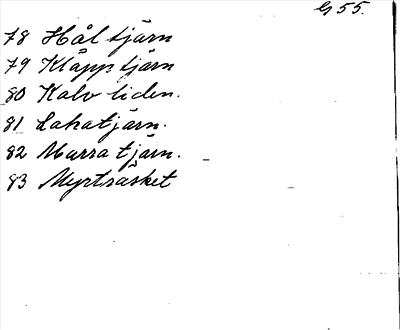 G 55.
78 Håltjärn
79 Kläpptjärn
80 Kalvliden.
81 Lakatjärn.
82 Murratjärn.
83 Myrträsket